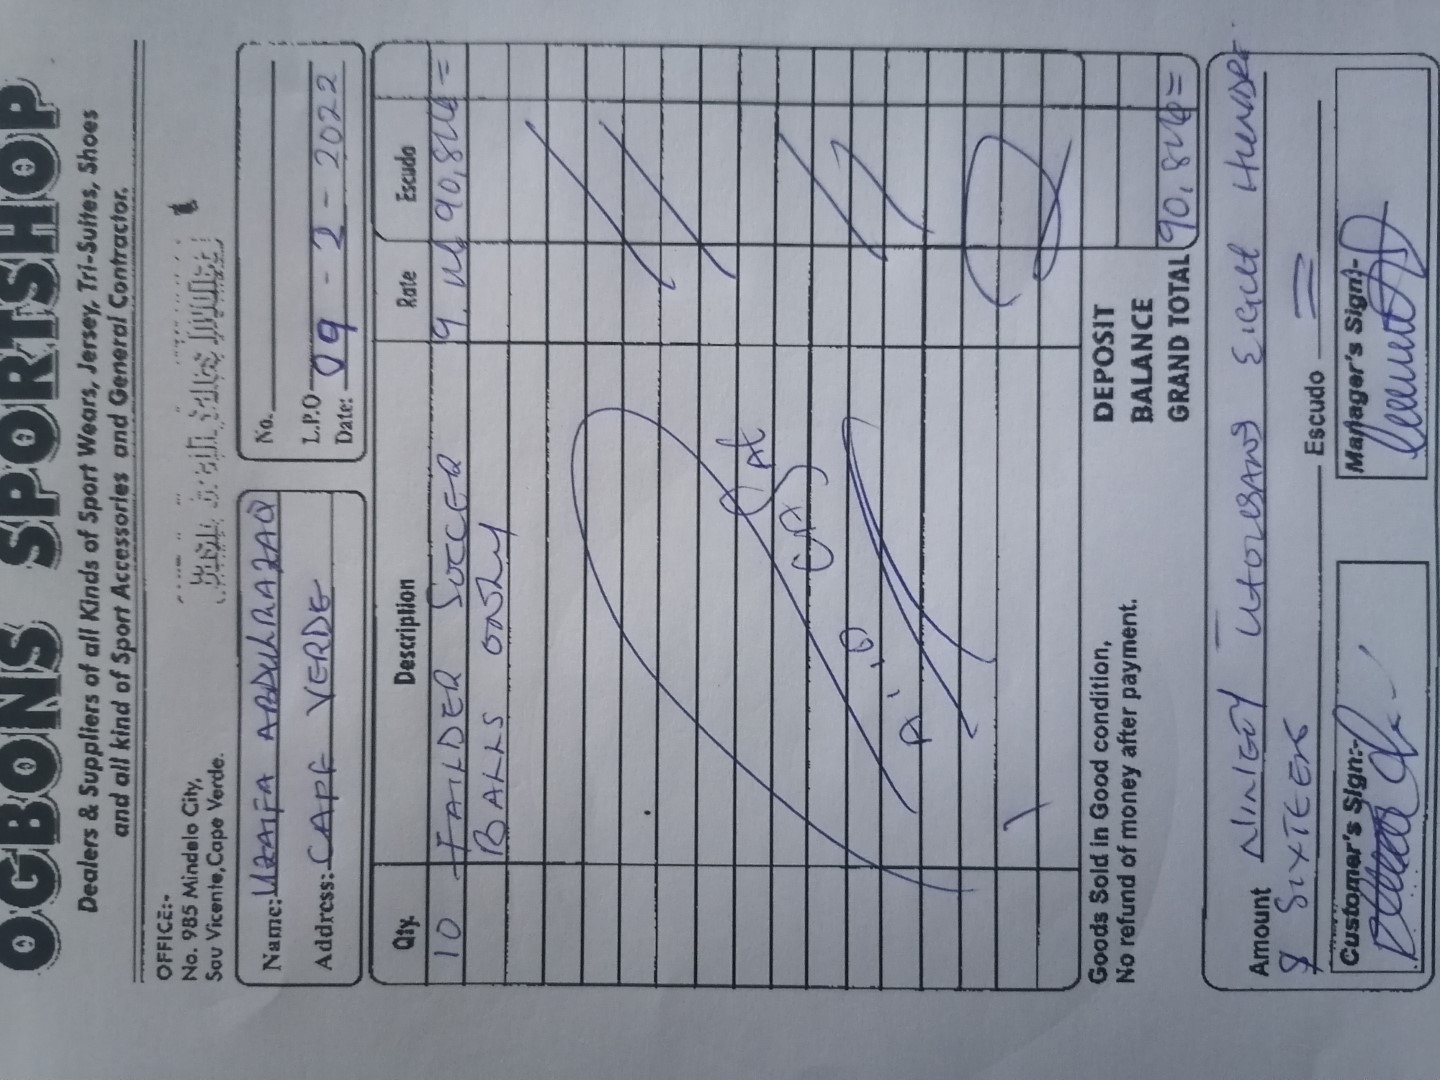 OGBONS SPORTSHOP
Dealers & Suppliers of all Kinds of Sport Wears, Jersey, Tri-Suites, Shoes
and all kind of Sport Accessories and General Contractor.
OFFICE:-
No. 985 Mindelo City,
Sau Vicente,Cape Verde.
Name: UZAIFA ABDULRAZAQ
Address: CAPE VERDE
No.
L.P.O
Date: 09 - 2 - 2022
Qty. Description Rate Escudo
10 FAILDER SOCCER 90,816=
BALLS ONLY
Goods Sold in Good condition,
No refund of money after payment.
DEPOSIT
BALANCE
GRAND TOTAL 90,816=
Amount NINETY THOUSAND EIGHT HUNDRED
& SIXTEEN Escudo
Customer's Sign:-
Manager's Sign:-